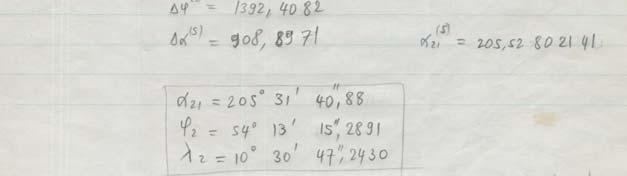 Δφ = 1392,4082
Δα⁽⁵⁾ = 908,8971 α₂₁⁽⁵⁾ = 205,52 80 21 41
α₂₁ = 205° 31' 40",88
φ₂ = 54° 13' 15",2891
λ₂ = 10° 30' 47",2430